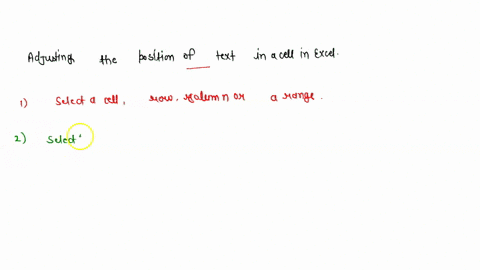 Adjusting the position of text in a cell in Excel.
1) Select a cell, row, column or a range.
2) Select